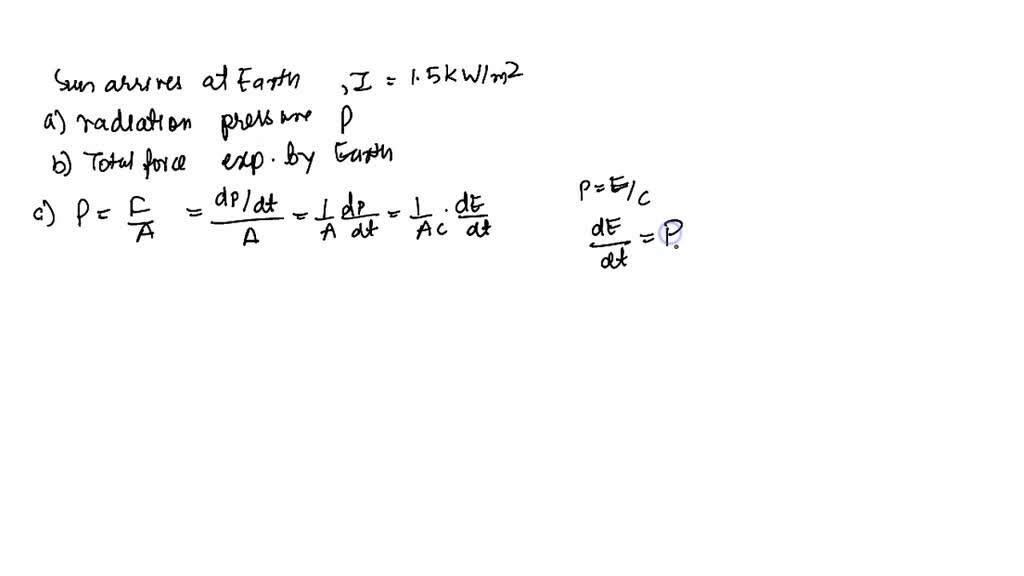 Sun arrives at Earth , I = 1.5 kW/m2
a) radiation pressure P
b) Total force exp. by Earth
a) P = F/A = (dP/dt)/A = 1/A dp/dt = 1/Ac . dE/dt
P = E/c
dE/dt = P.